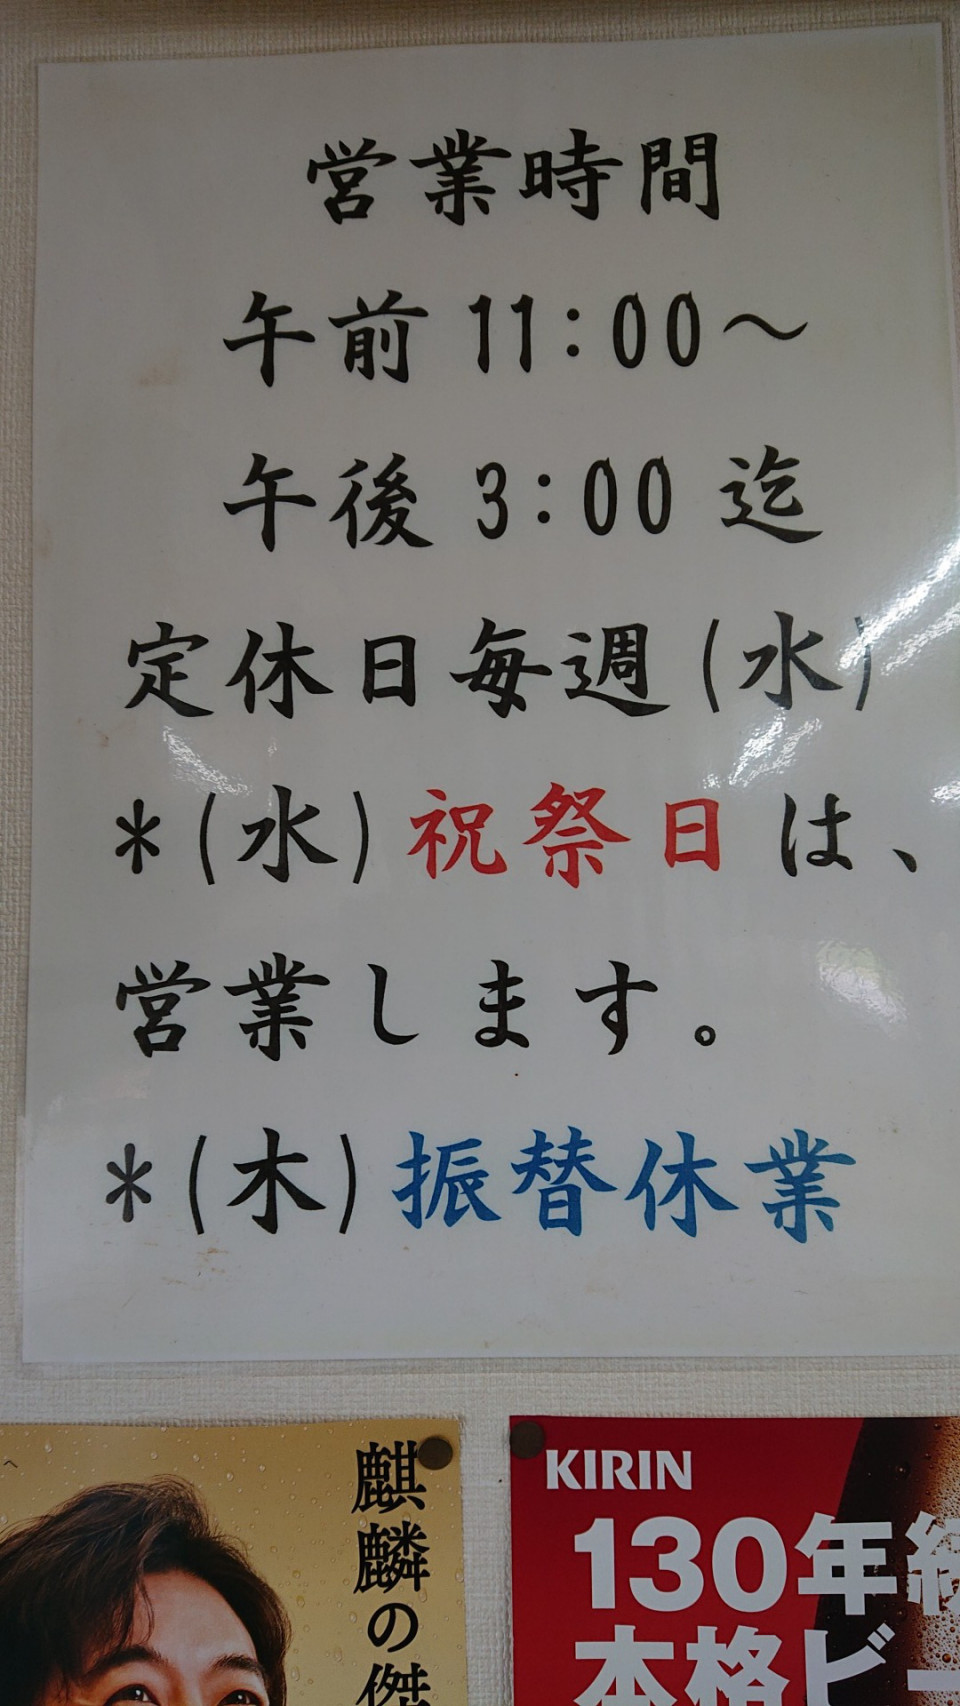 営業時間
午前 11:00～
午後 3:00 迄
定休日毎週(水)
＊(水)祝祭日は、
営業します。
＊(木)振替休業
麒麟の傑
KIRIN
130年続
本格ビー